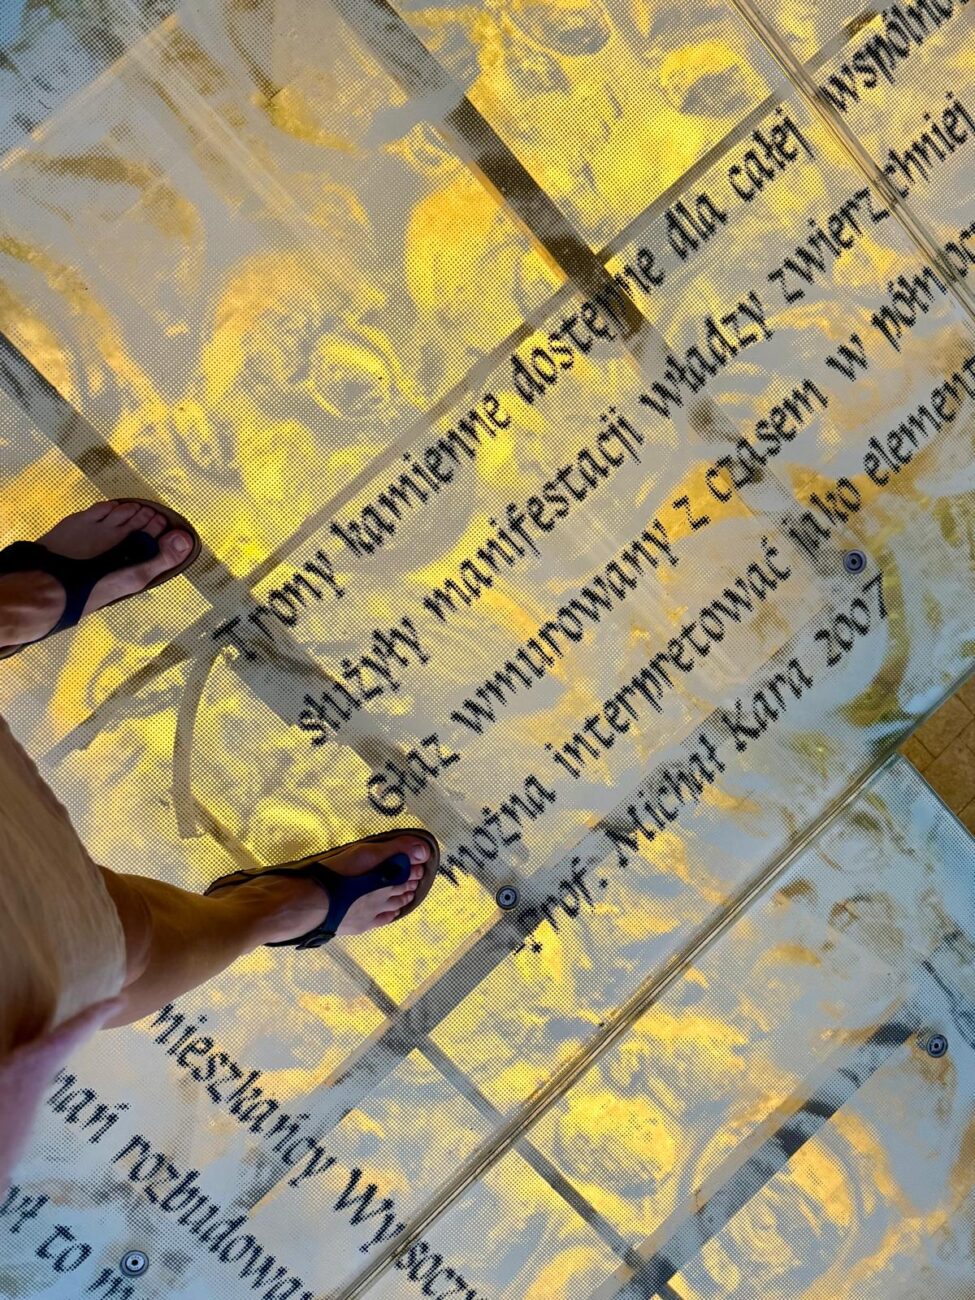 Trony kamienne dostępne dla całej wspólno
służyły manifestacji władzy zwierzchniej
Głaz wmurowany z czasem w półn
można interpretować jako element
Prof. Michał Kara 2007
mieszkańcy Wysocz
nań rozbudowa
to